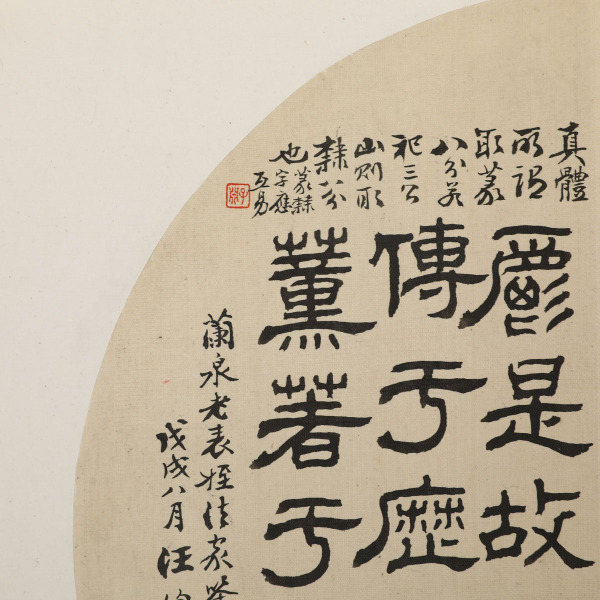 真體
所謂
取篆
八分若
祀三公
山則取
隸分
也篆隸
字應
互易
鬱是故
傳于歷
薰著于
蘭泉老表姪法家鑒
戊戌八月汪